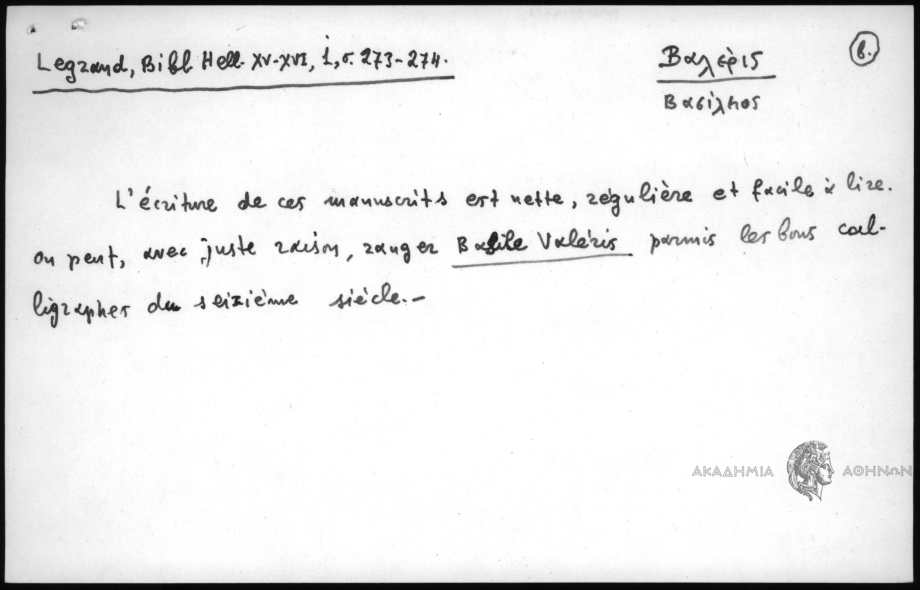 Legrand, Bibl Hell. XV-XVI, 1, σ. 273-274.
Βαλέρις
β.
Βασίλειος
L'écriture de ces manuscrits est nette, régulière et facile à lire.
on peut, avec juste raison, ranger Basile Valéris parmis les bons cal-
ligraphes du seizième siècle.-
ΑΚΑΔΗΜΙΑ ΑΘΗΝΩΝ